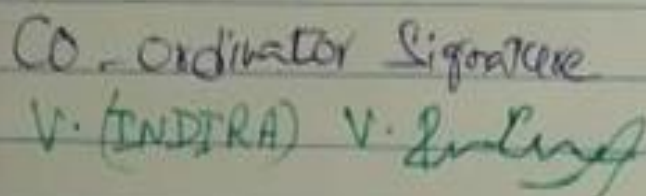 Co-ordinator Signature
V. (INDIRA) V.